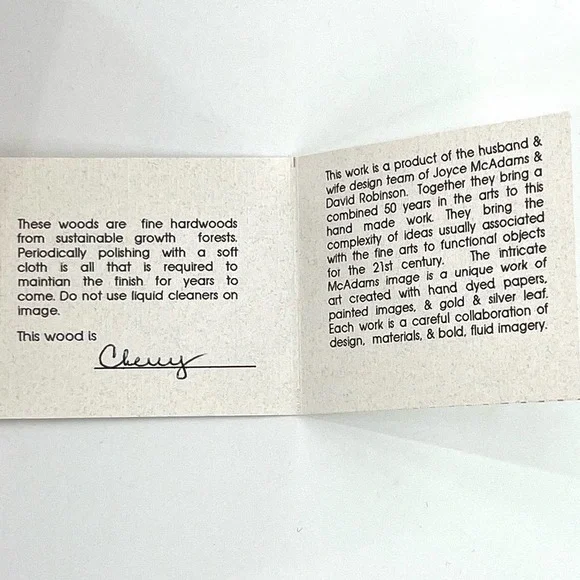 These woods are fine hardwoods
from sustainable growth forests.
Periodically polishing with a soft
cloth is all that is required to
maintian the finish for years to
come. Do not use liquid cleaners on
image.
This wood is
Cherry
This work is a product of the husband &
wife design team of Joyce McAdams &
David Robinson. Together they bring a
combined 50 years in the arts to this
hand made work. They bring the
complexity of ideas usually associated
with the fine arts to functional objects
for the 21st century. The intricate
McAdams image is a unique work of
art created with hand dyed papers,
painted images, & gold & silver leaf.
Each work is a careful collaboration of
design, materials, & bold, fluid imagery.